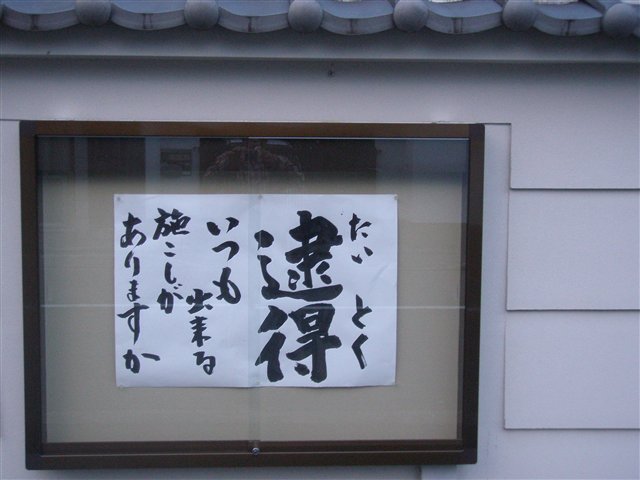 たい とく
逮得
いつも
出来る
施こしが
ありますか